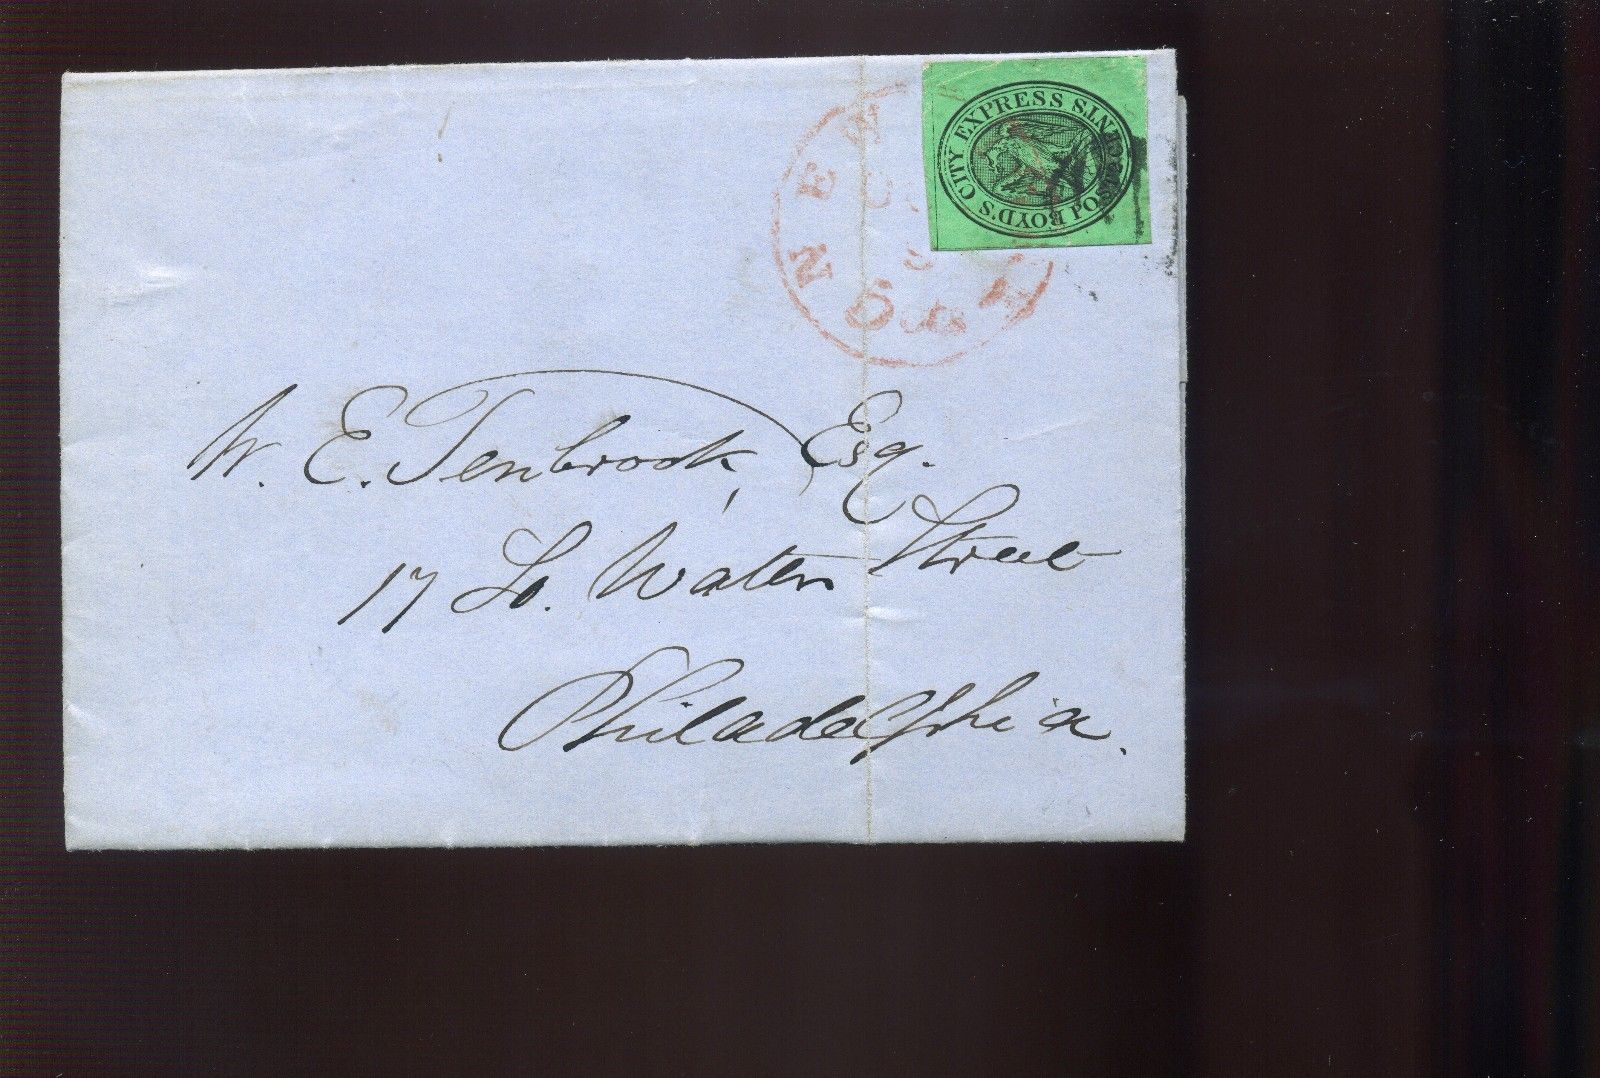 BOYD'S CITY EXPRESS
W. E. Tenbrook, Esq.
17 So. Water Street
Philadelphia.